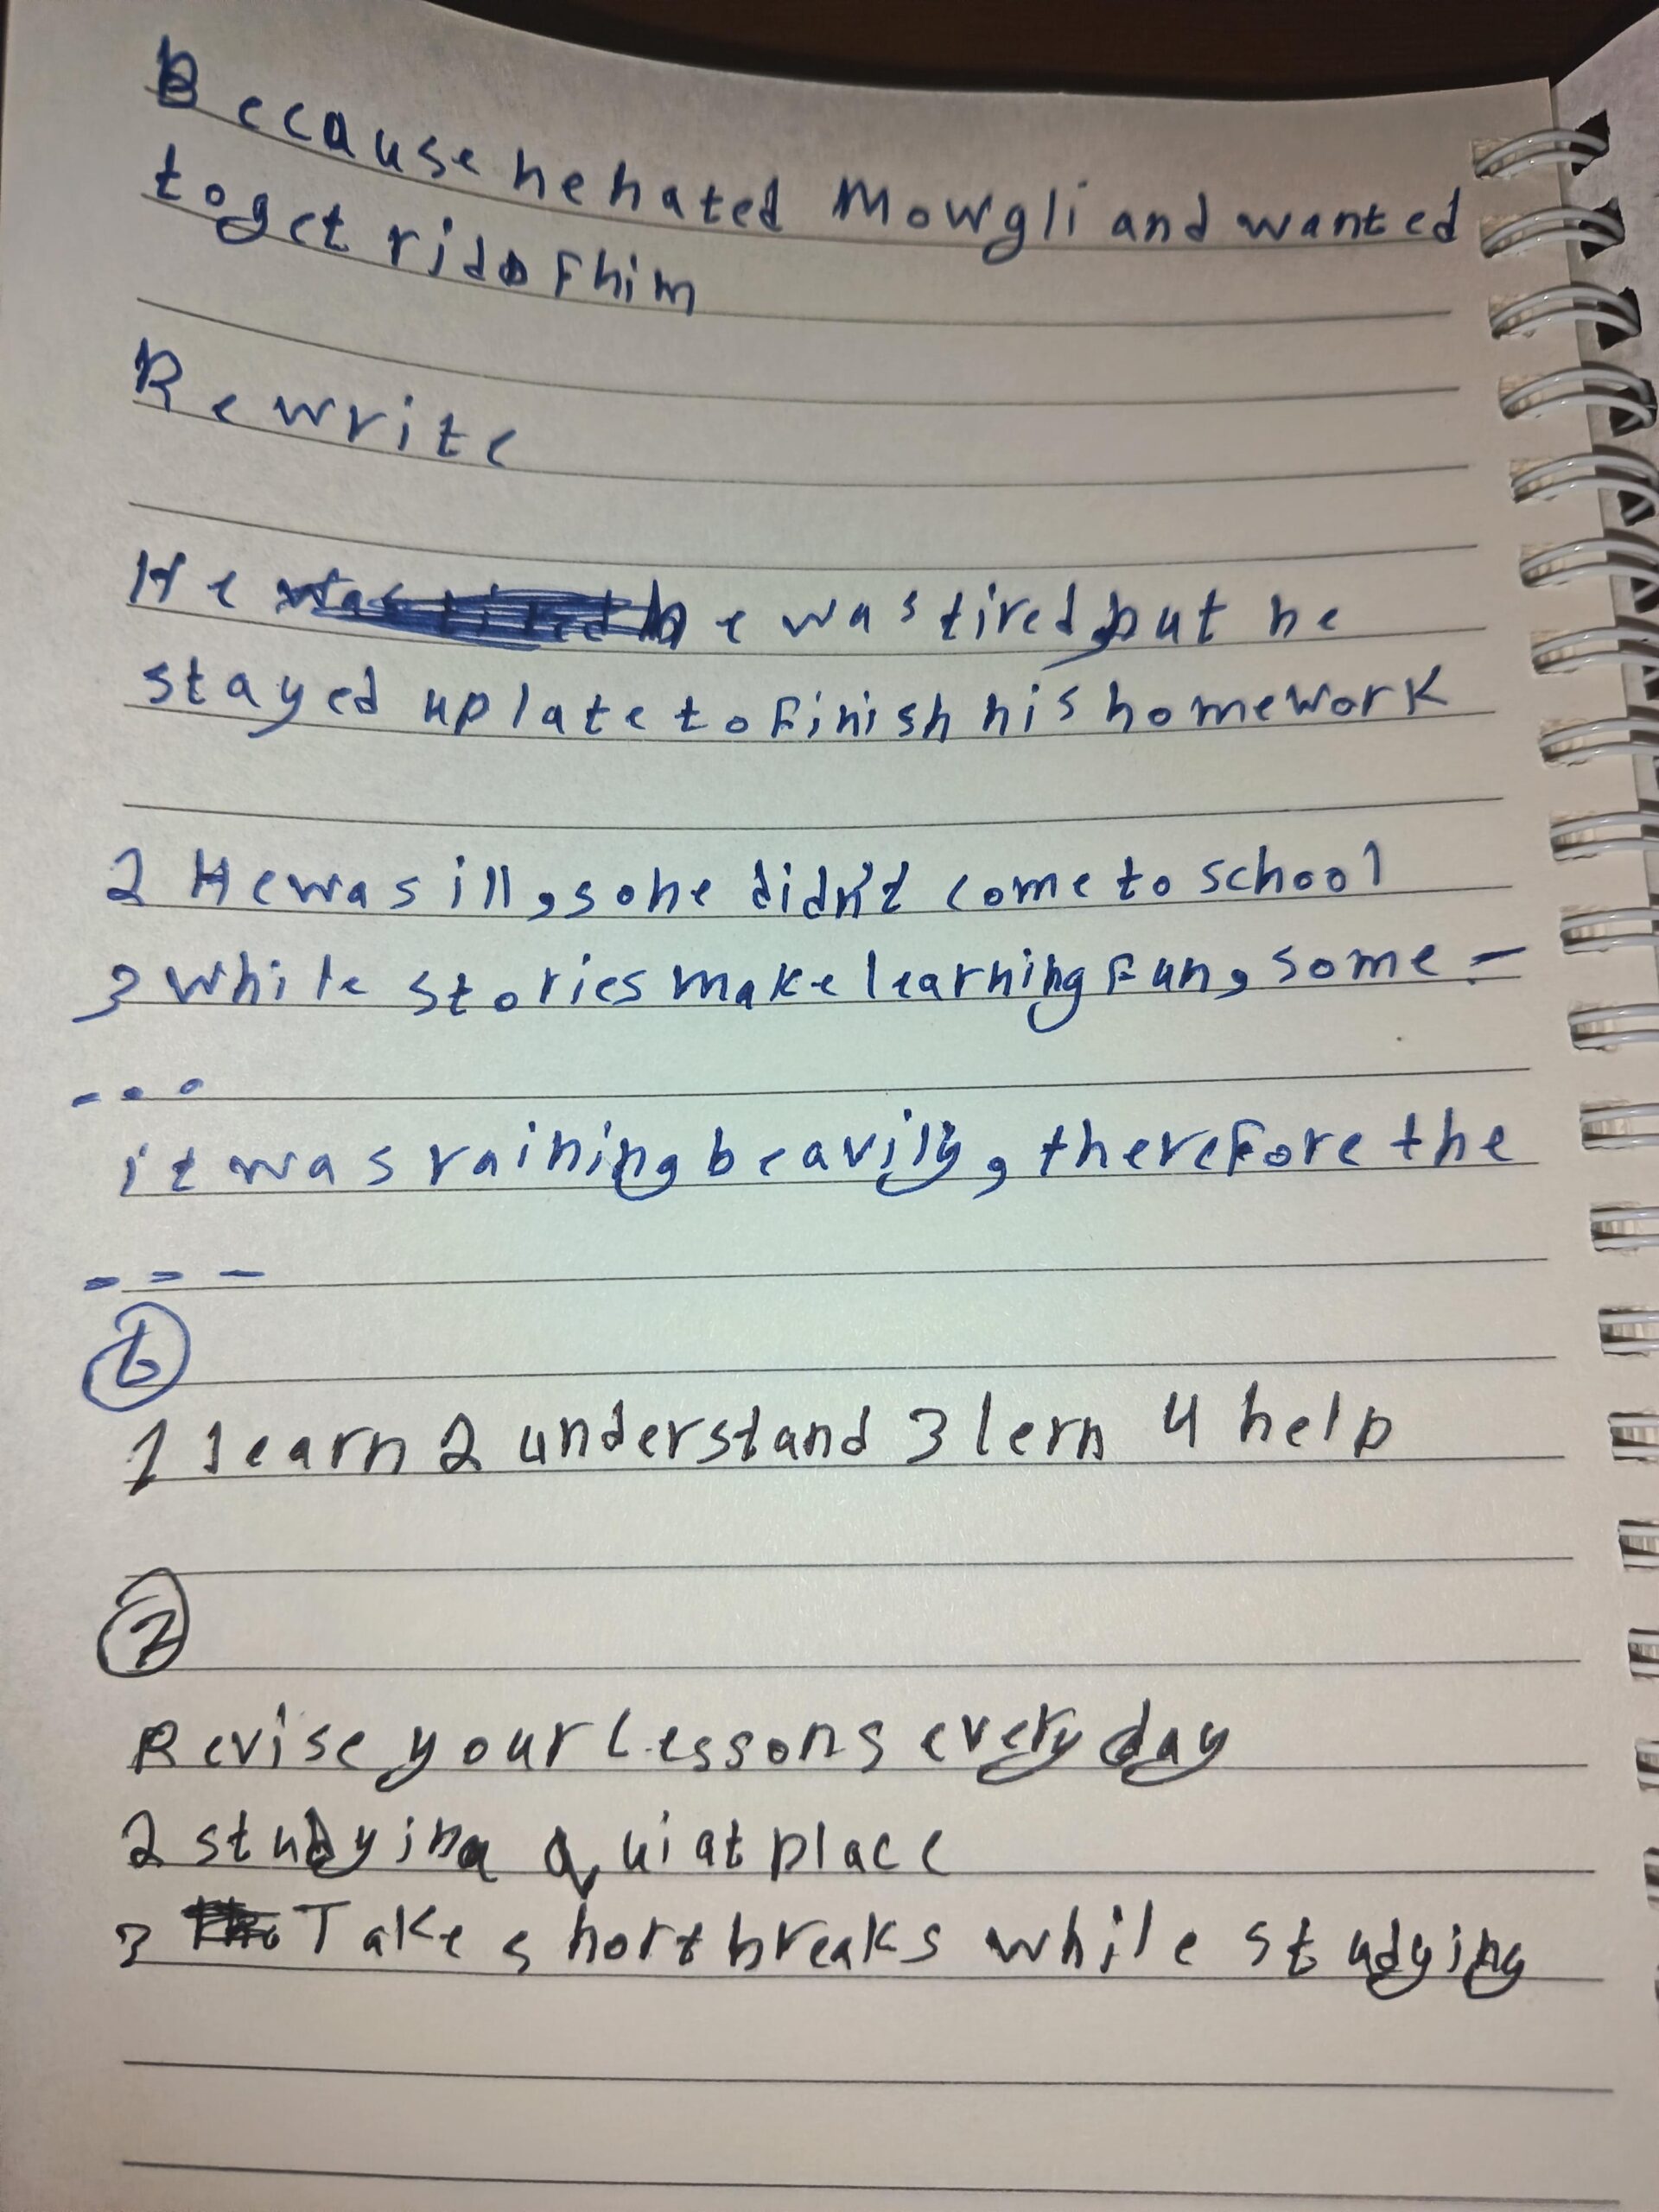 Because he hated Mowgli and wanted
to get rid of him
Rewrite
He he was tired, but he
stayed up late to finish his homework
2 He was ill, so he didn't come to school
3 While stories make learning fun, some -
...
it was raining beavily, therefore the
---
6
1 learn 2 understand 3 lern 4 help
7
Revise your lessons every day
2 study in a quiat place
3 Take short breaks while studying